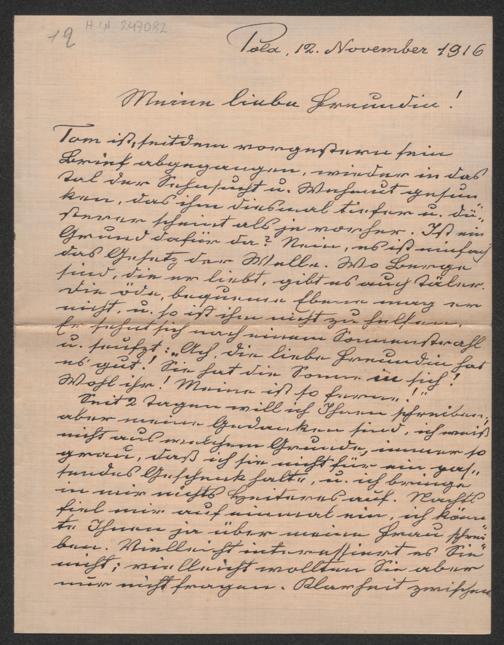 19 H.I.N. 247082
Pola, 12. November 1916
Meine liebe Freundin!
Tom ist, seitdem vorgestern sein
Brief abgegangen, wieder in das
Tal der Sehnsucht u. Wehmut gesun
ken, das ihm diesmal tiefer u. dü„
sterer scheint als je vorher. Ist ein
Grund dafür da? Nein, es ist einfach
das Gesetz der Welle. Wo Berge
sind, die er liebt, gibt es auch Täler.
Die öde, bequeme Ebene mag er
nicht, u. so ist ihm nicht zu helfen.
Er sehnt sich nach einem Sonnenstrahl
u. seufzt: „Ach, die liebe Freundin hat
es gut! Sie hat die Sonne in sich!
Wohl ihr! Meine ist so ferne!"
Seit 2 Tagen will ich Ihnen schreiben,
aber meine Gedanken sind, ich weiß
nicht aus welchem Grunde, immer so
grau, daß ich sie nicht für ein pas„
sendes Geschenk halte, u. ich bringe
in mir nichts Heiteres auf. Nachts
fiel mir auf einmal ein, ich könn„
te Ihnen ja über meine Frau schrei„
ben. Vielleicht interessiert es Sie
nicht; vielleicht wollten Sie aber
nur nicht fragen. Klarheit zwischen